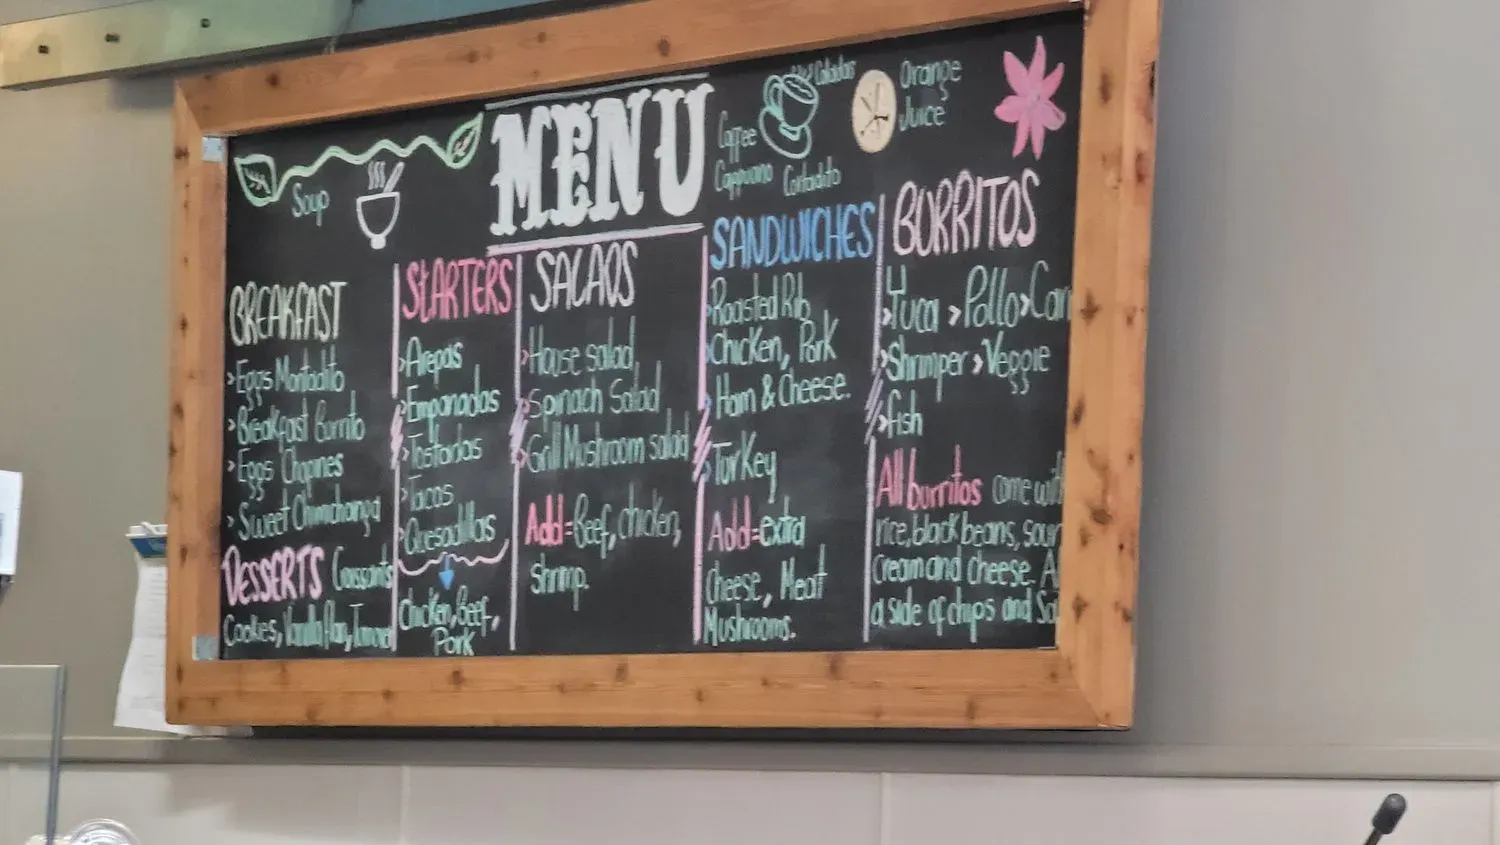 MENU
Soup
Coffee
Coladas
Cappuccino
Cortadito
Orange
Juice
BREAKFAST
>Eggs Montadito
>Breakfast Burrito
>Eggs Chapines
>Sweet Chimichanga
DESSERTS Croissants
Cookies, Vanilla flan,
STARTERS
>Arepas
>Empanadas
>Tostadas
>Tacos
>Quesadillas
Chicken, Beef,
Pork
SALADS
>House salad
>Spinach Salad
>Grill Mushroom salad
Add=Beef, chicken,
shrimp.
SANDWICHES
>Roasted Rib
>Chicken, Pork
>Ham & Cheese.
>Turkey
Add=extra
cheese, Meat
Mushrooms.
BURRITOS
>Yuca >Pollo >Carn
>Shrimper >Veggie
>fish
All burritos come with
rice, black beans, sour
cream and cheese. A
a side of chips and Sa